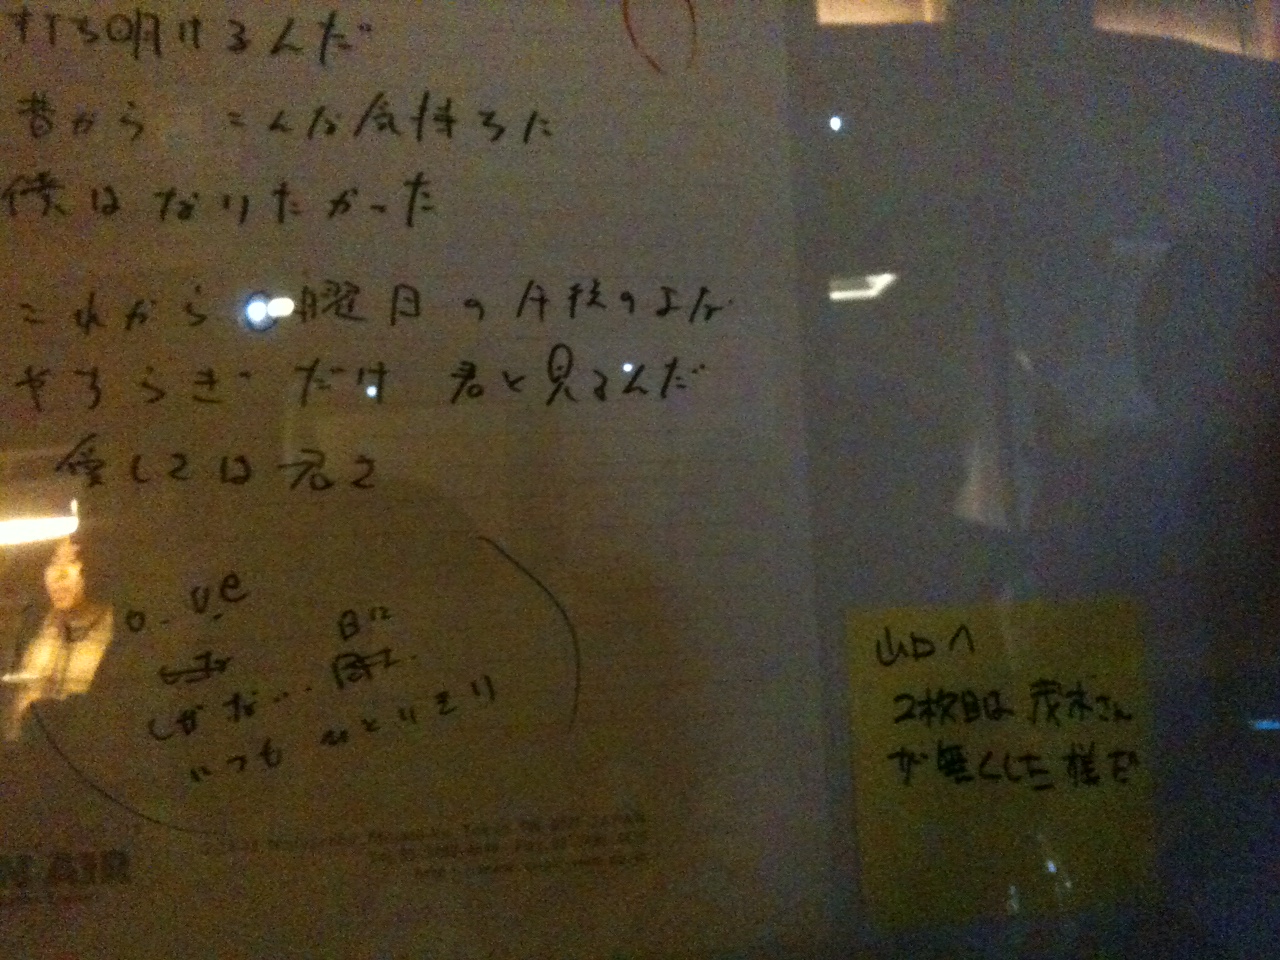 打ち明けるんだ
昔から こんな気持ちに
僕はなりたかった
これから 曜日の午後のよな
やすらぎ だけ 君と見るんだ
愛しては君を
o. ve
日に
しがな…
いつも ひとりきり
N AIR
山口へ
2枚目は 茂木さん
が無くした様だ